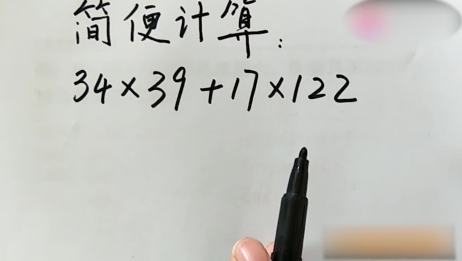 简便计算:
34×39+17×122